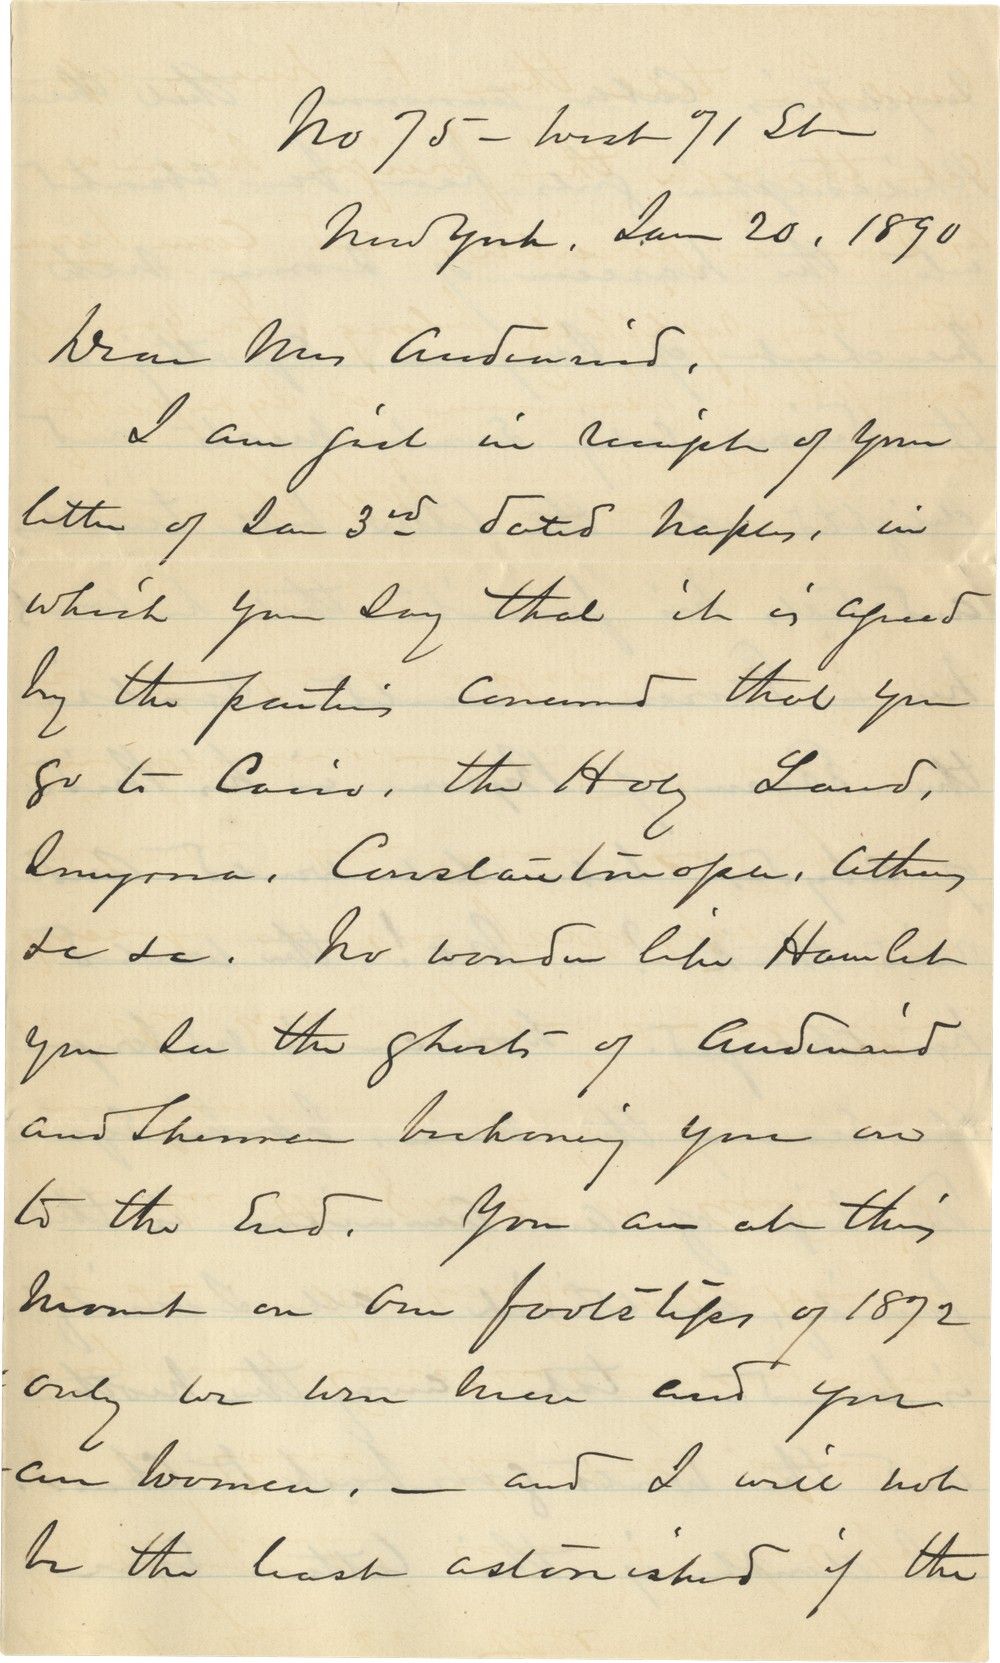 No 75 – West 71 St
New York, Jan 20, 1890
Dear Mrs Audenried,
I am just in receipt of your
letter of Jan 3rd dated Naples, in
which you say that it is agreed
by the parties concerned that you
go to Cairo, the Holy Land,
Smyrna, Constantinople, Athens
&c &c. No wonder like Hamlet
you see the ghosts of Audenried
and Sherman beckoning you on
to the End. You are at this
moment on our footsteps of 1872
only we were men and you
are women, — and I will not
be the least astonished if the